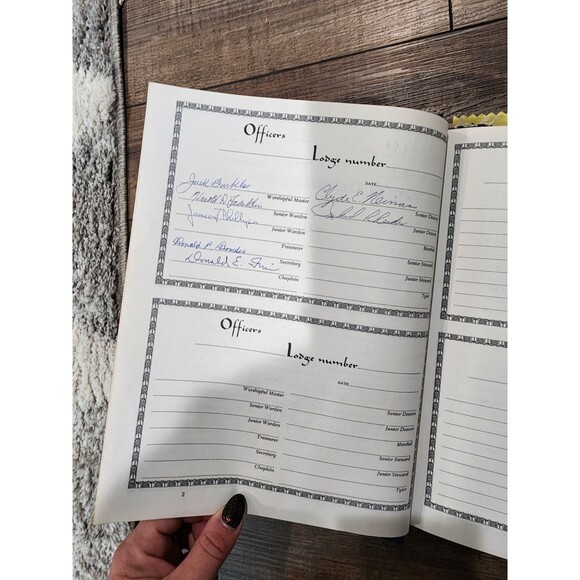 Officers
Lodge number
DATE
Jack
Worshipful Master
Clyde E.
Senior Deacon
Senior Warden
Junior Deacon
James T. Phillips
Junior Warden
Marshal
Treasurer
Senior Steward
Donald P.
Secretary
Junior Steward
Donald E.
Chaplain
Tyler
Officers
Lodge number
DATE
Worshipful Master
Senior Deacon
Senior Warden
Junior Deacon
Junior Warden
Marshal
Treasurer
Senior Steward
Secretary
Junior Steward
Chaplain
Tyler